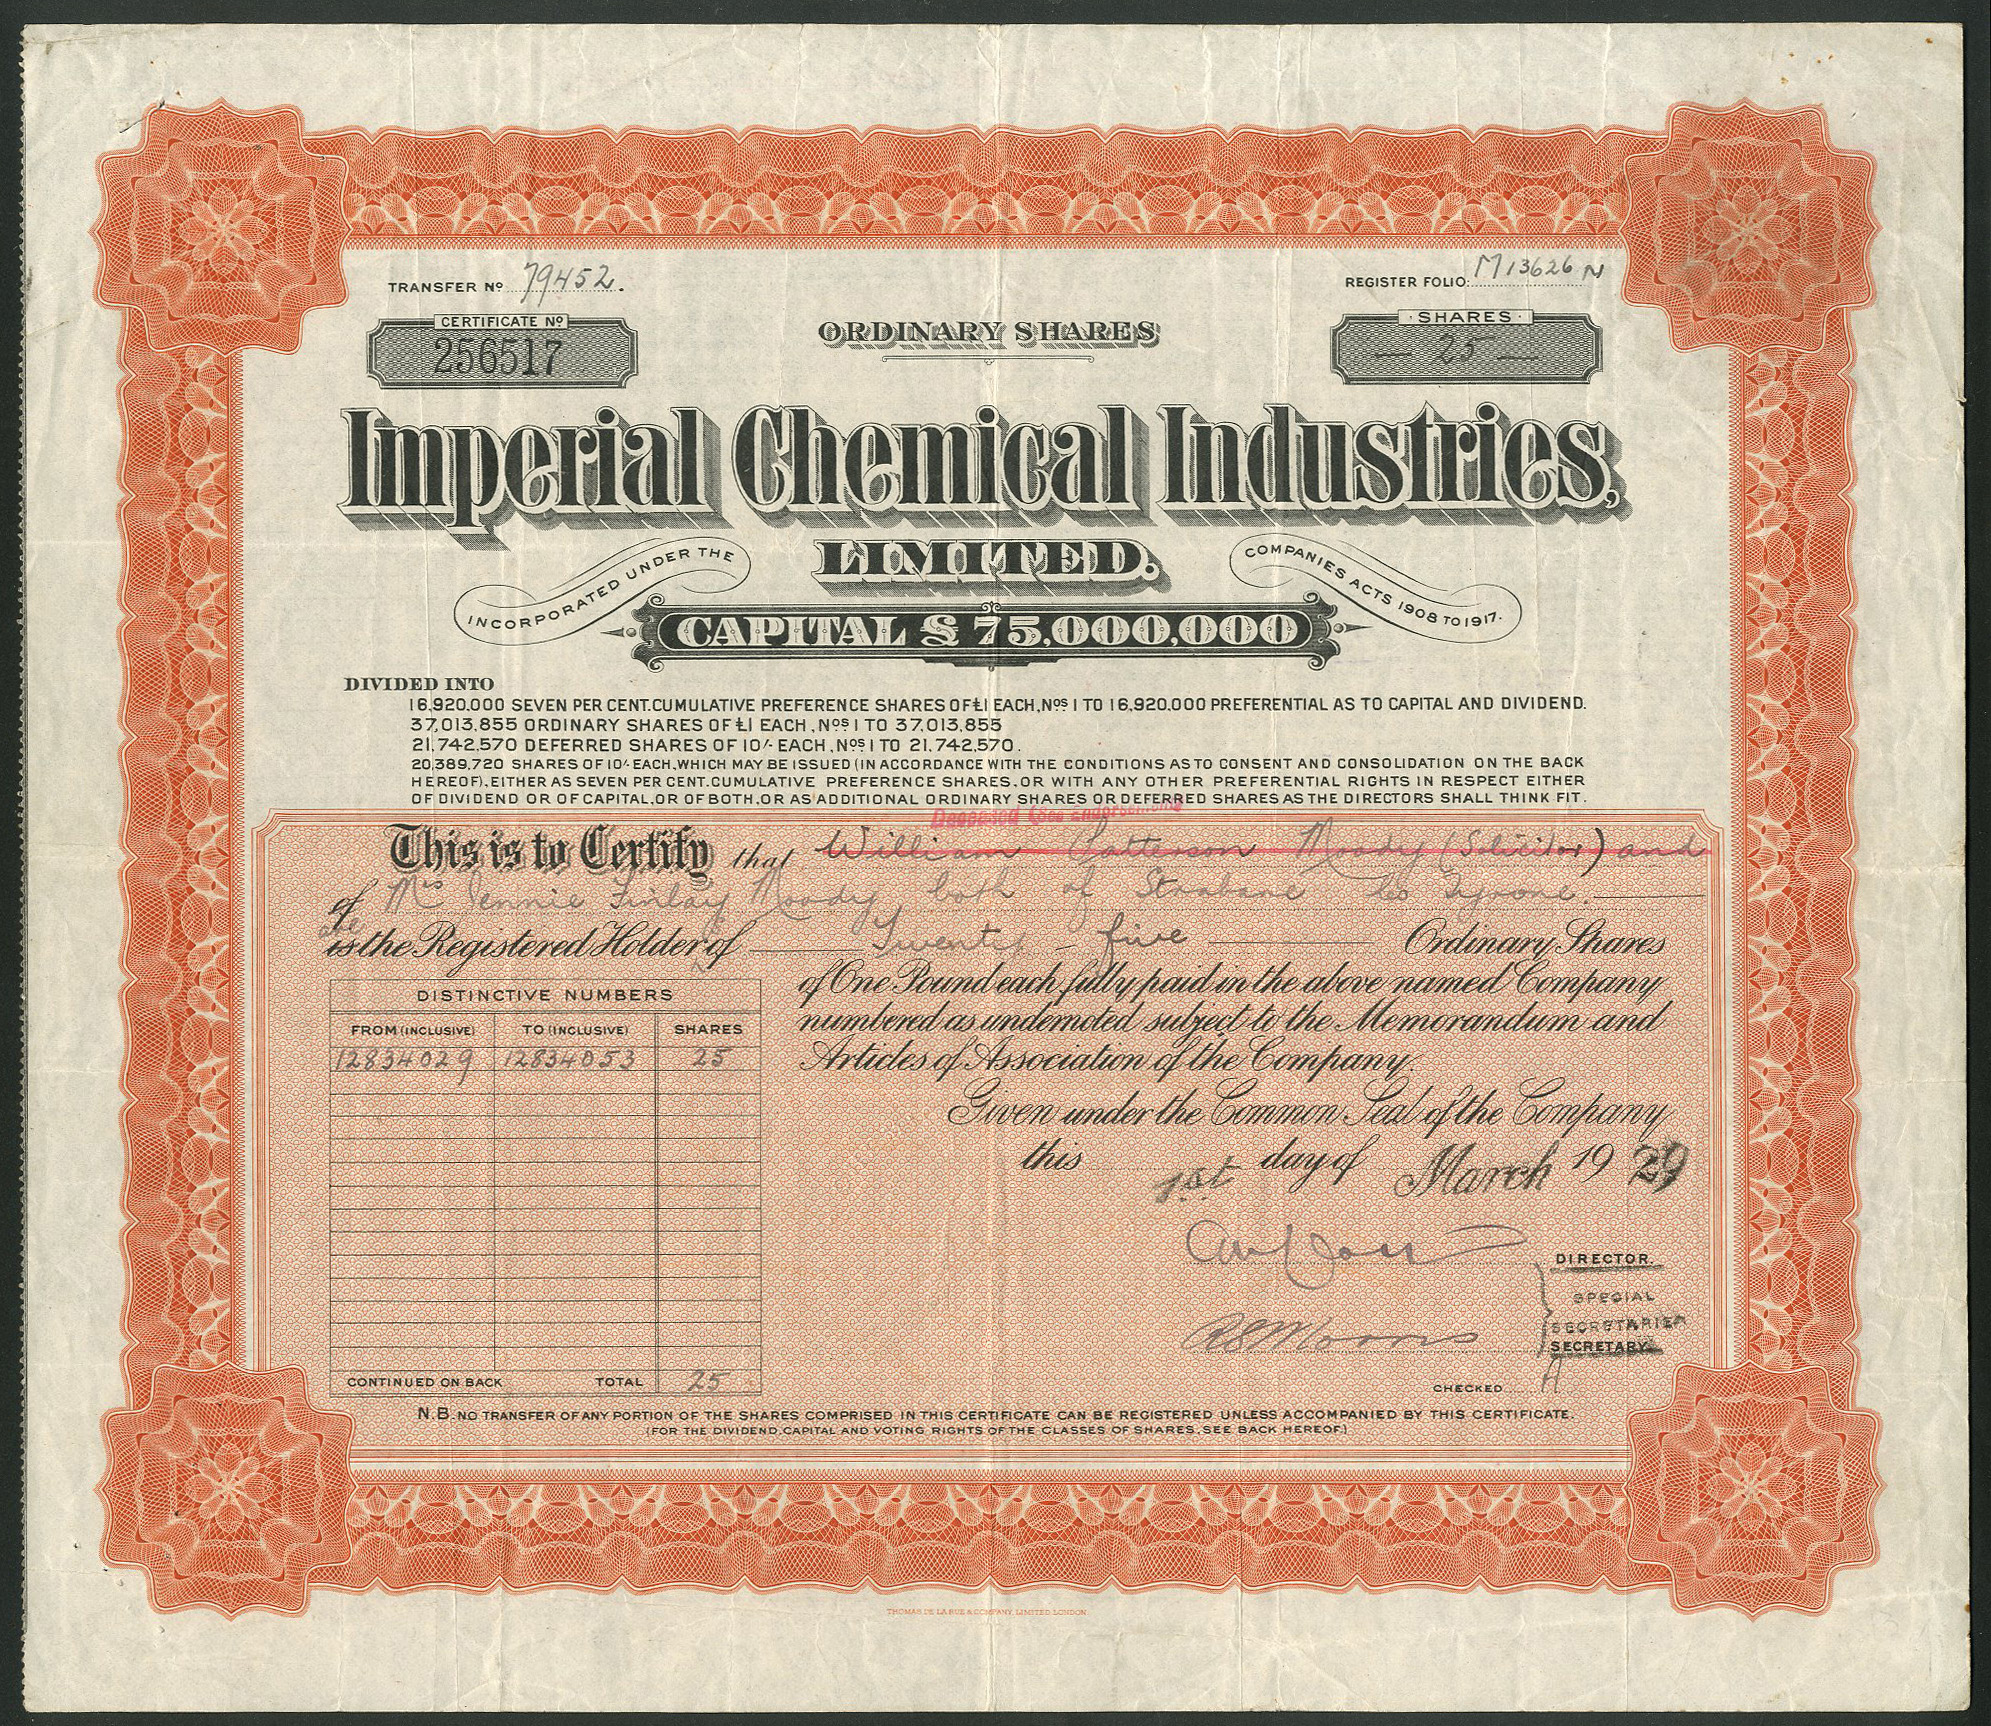 TRANSFER Nº 79452.
REGISTER FOLIO: M13626 N
CERTIFICATE Nº
256517
ORDINARY SHARES
· SHARES ·
— 25 —
Imperial Chemical Industries,
LIMITED.
INCORPORATED UNDER THE
COMPANIES ACTS 1908 TO 1917.
CAPITAL £ 75,000,000
DIVIDED INTO
16,920,000 SEVEN PER CENT. CUMULATIVE PREFERENCE SHARES OF £1 EACH, Nos 1 TO 16,920,000 PREFERENTIAL AS TO CAPITAL AND DIVIDEND.
37,013,855 ORDINARY SHARES OF £1 EACH, Nos 1 TO 37,013,855
21,742,570 DEFERRED SHARES OF 10/- EACH, Nos 1 TO 21,742,570.
20,389,720 SHARES OF 10/- EACH, WHICH MAY BE ISSUED (IN ACCORDANCE WITH THE CONDITIONS AS TO CONSENT AND CONSOLIDATION ON THE BACK
HEREOF), EITHER AS SEVEN PER CENT. CUMULATIVE PREFERENCE SHARES, OR WITH ANY OTHER PREFERENTIAL RIGHTS IN RESPECT EITHER
OF DIVIDEND OR OF CAPITAL, OR OF BOTH, OR AS ADDITIONAL ORDINARY SHARES OR DEFERRED SHARES AS THE DIRECTORS SHALL THINK FIT.
Deceased (See Endorsements
This is to Certify that William Patterson Moody (Solicitor) and
of Mrs Jennie Finlay Moody both of Strabane Co Tyrone.
are
is the Registered Holders of Twenty - five Ordinary Shares
of One Pound each fully paid in the above named Company
numbered as undernoted subject to the Memorandum and
Articles of Association of the Company.
DISTINCTIVE NUMBERS
FROM (INCLUSIVE) TO (INCLUSIVE) SHARES
12834029 12834053 25
Given under the Common Seal of the Company
this 1st day of March 1929
DIRECTOR.
SPECIAL
SECRETARIES
RSMorris
SECRETARY.
CONTINUED ON BACK TOTAL 25
CHECKED
N.B. NO TRANSFER OF ANY PORTION OF THE SHARES COMPRISED IN THIS CERTIFICATE CAN BE REGISTERED UNLESS ACCOMPANIED BY THIS CERTIFICATE.
(FOR THE DIVIDEND, CAPITAL AND VOTING RIGHTS OF THE CLASSES OF SHARES, SEE BACK HEREOF.)
THOMAS DE LA RUE & COMPANY, LIMITED, LONDON.